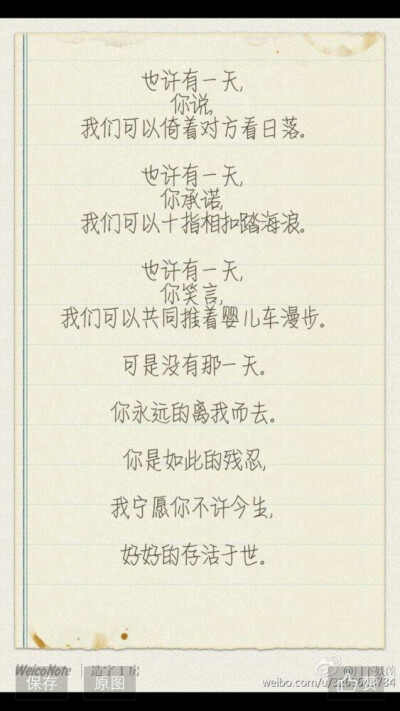 也许有一天,
你说,
我们可以倚着对方看日落。
也许有一天,
你承诺,
我们可以十指相扣踏海浪。
也许有一天,
你笑言,
我们可以共同推着婴儿车漫步。
可是没有那一天。
你永远的离我而去。
你是如此的残忍,
我宁愿你不许今生,
好好的存活于世。
WeicoNote | 造字工房
保存 原图
weibo.com/u/